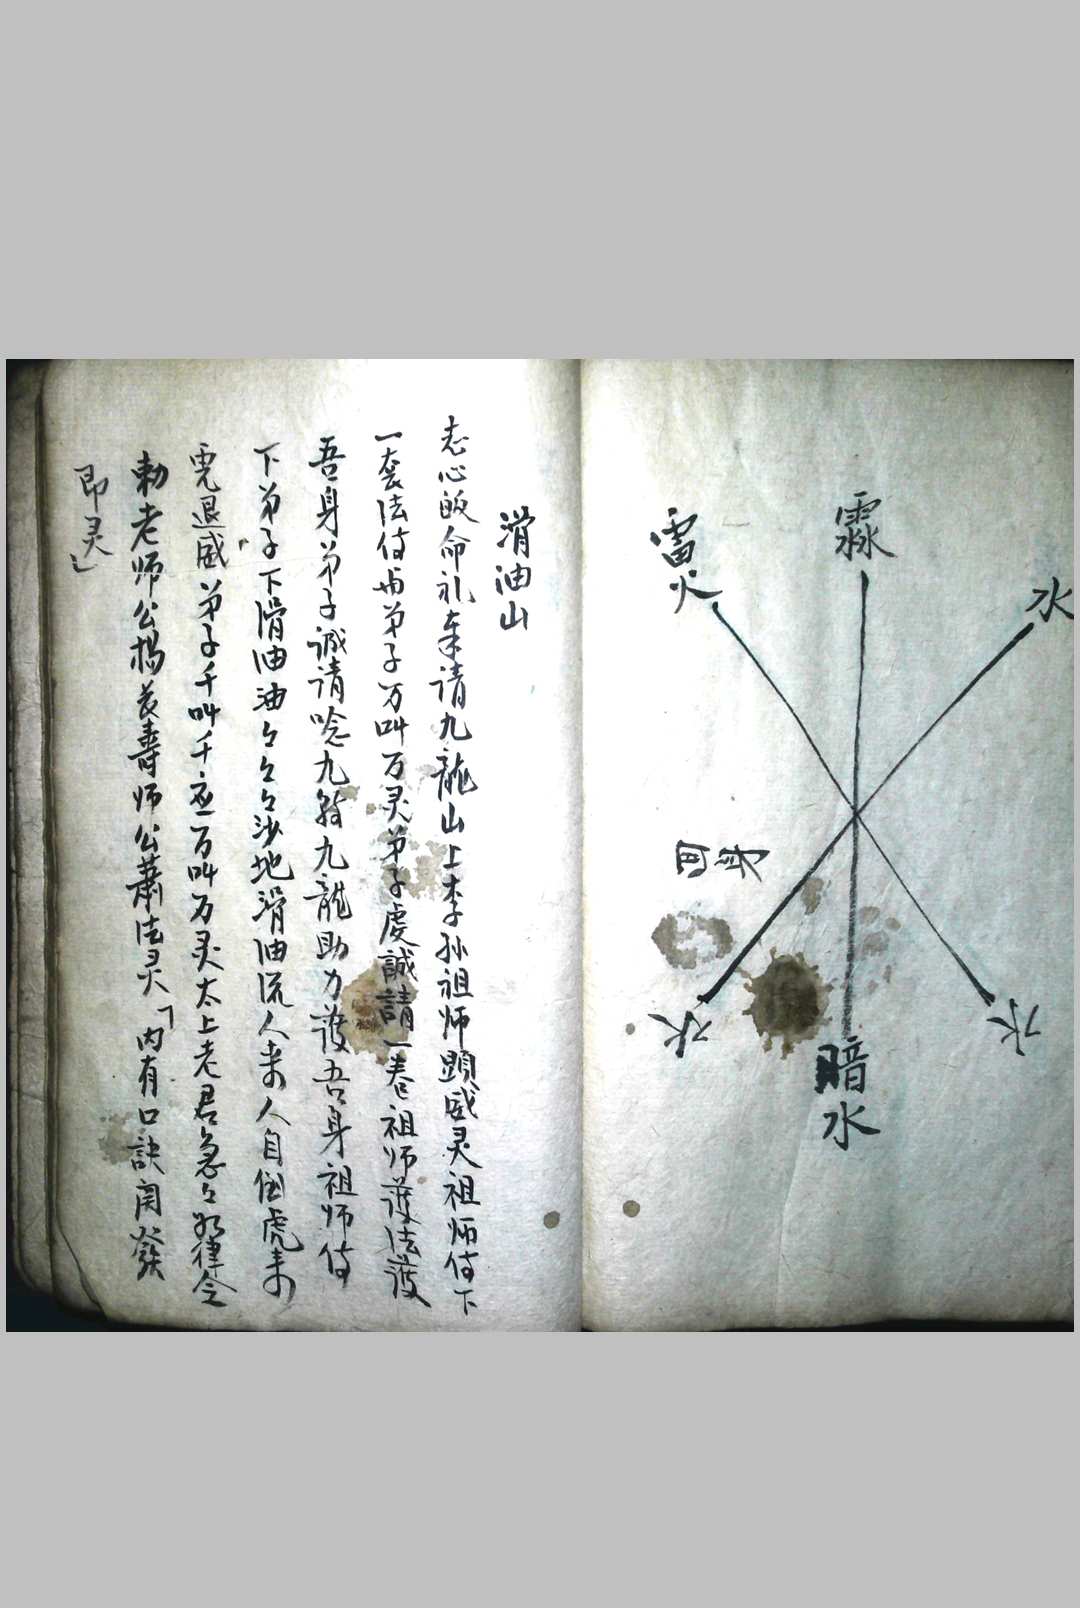 霖
雷火
水
水
水
暗水
滑油山
志心皈命礼奉请九龍山上李孙祖师顕威灵祖师付下
一套法付与弟子万叫万灵弟子虔誠請一卷祖师護法護
吾身弟子诚请唸九龍九龍助力護吾身祖师付
下弟子下滑油油々々々沙地滑油流人来人自倒虎来
虎退威弟子千叫千应万叫万灵太上老君急々如律令
勅老师公楊長壽师公蕭法灵「内有口訣開發
即灵」